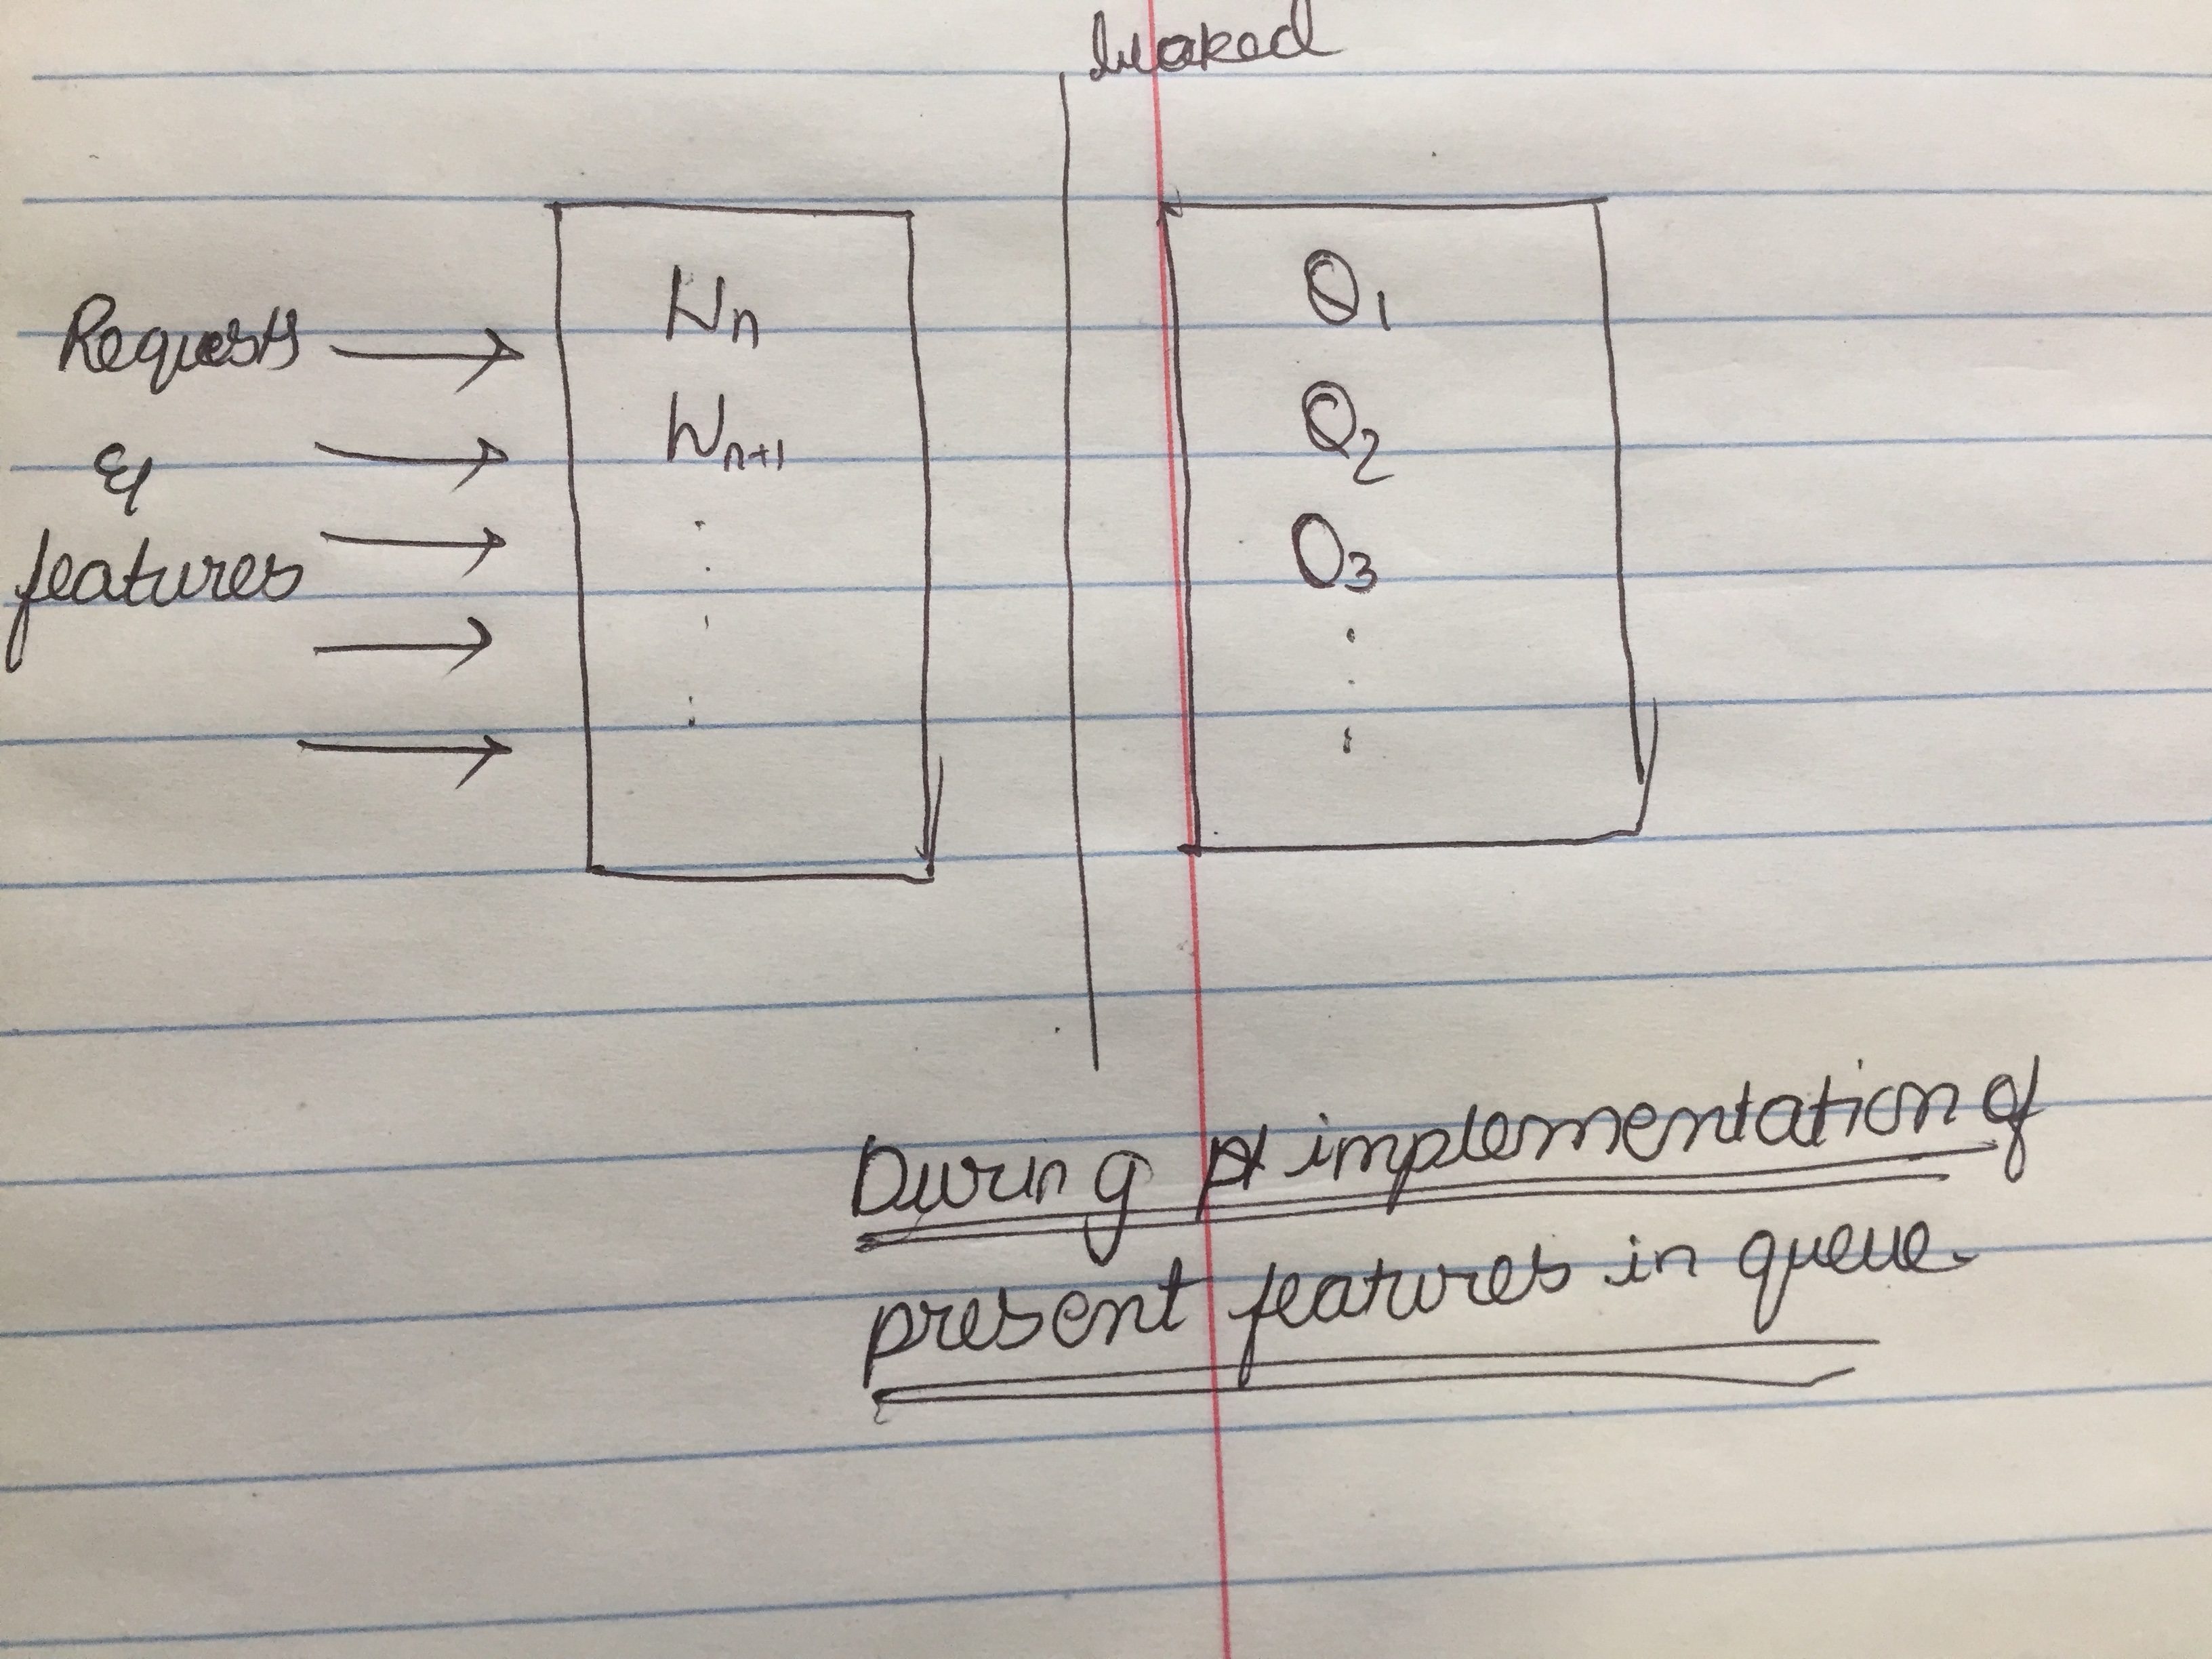 Requests
&
features
Wn
Wn+1
Q1
Q2
O3
During implementation of
present features in queue.